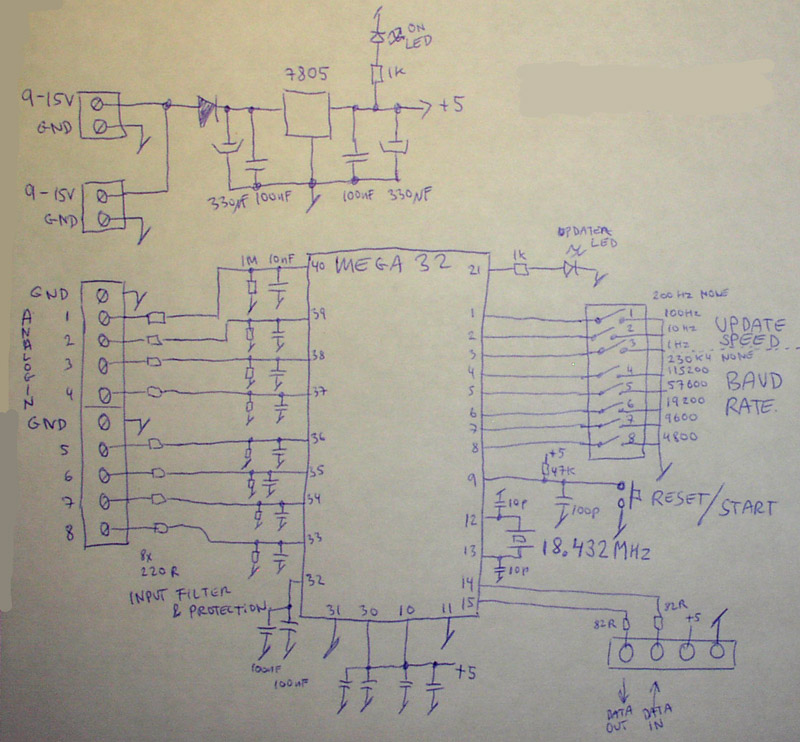 ON
LED
1K
7805
9-15V
GND
+5
9-15V
GND
330µF 100nF 100nF 330µF
MEGA 32
1M 10nF 40
39
38
37
36
35
34
33
32
31 30 10 11
21
1
2
3
4
5
6
7
8
9
12
13
14
15
GND
1
2
3
4
GND
5
6
7
8
ANALOG IN
8x
220R
INPUT FILTER
& PROTECTION
100nF
100nF
+5
1K
LED
200Hz NONE
1 100Hz
2 10Hz
3 1Hz
UPDATE
SPEED
230K4 NONE
4 115200
5 57600
6 19200
7 9600
8 4800
BAUD
RATE.
+5
47K
100p
RESET/START
10p
18.432MHz
10p
82R
82R
+5
DATA
OUT
DATA
IN